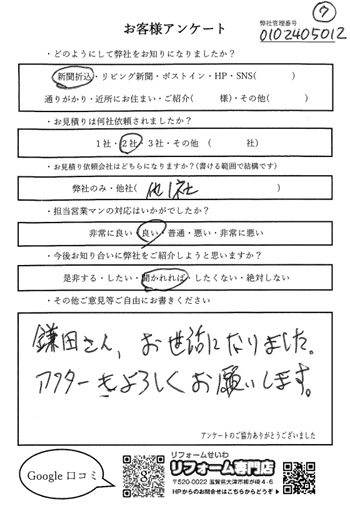 ⑦
お客様アンケート
弊社管理番号
0102405012
・どのようにして弊社をお知りになりましたか？
新聞折込・リビング新聞・ポストイン・HP・SNS( )
通りがかり・近所にお住まい・ご紹介( 様)・その他( )
・お見積りは何社依頼されましたか？
1社・2社・3社・その他 ( 社)
・お見積り依頼会社はどちらになりますか？(書ける範囲で結構です)
弊社のみ・他社( 他1社 )
・担当営業マンの対応はいかがでしたか？
非常に良い・良い・普通・悪い・非常に悪い
・今後お知り合いに弊社をご紹介しようと思いますか？
是非する・したい・聞かれれば・したくない・絶対しない
・その他ご意見等ご自由にお書きください
鎌田さん、お世話になりました。
アフターもよろしくお願いします。
アンケートのご協力ありがとうございました
Google 口コミ
リフォームせいわ
リフォーム専門店
〒520-0022 滋賀県大津市柳が崎4-6
HPからのお問合せはこちらからどうぞ▶